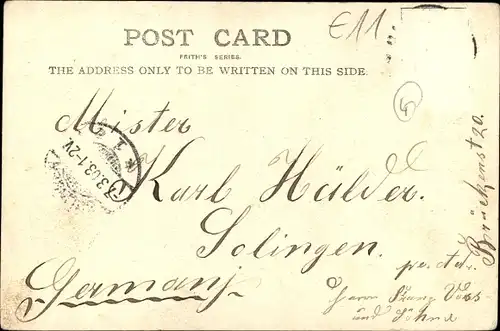 E11
POST CARD
FRITH'S SERIES.
THE ADDRESS ONLY TO BE WRITTEN ON THIS SIDE.
Mister
Karl Hülder.
Solingen.
Germany
pr. adr.
Herrn Franz Voss
und Söhne
Brückenst 20.
3.03.1-2V.